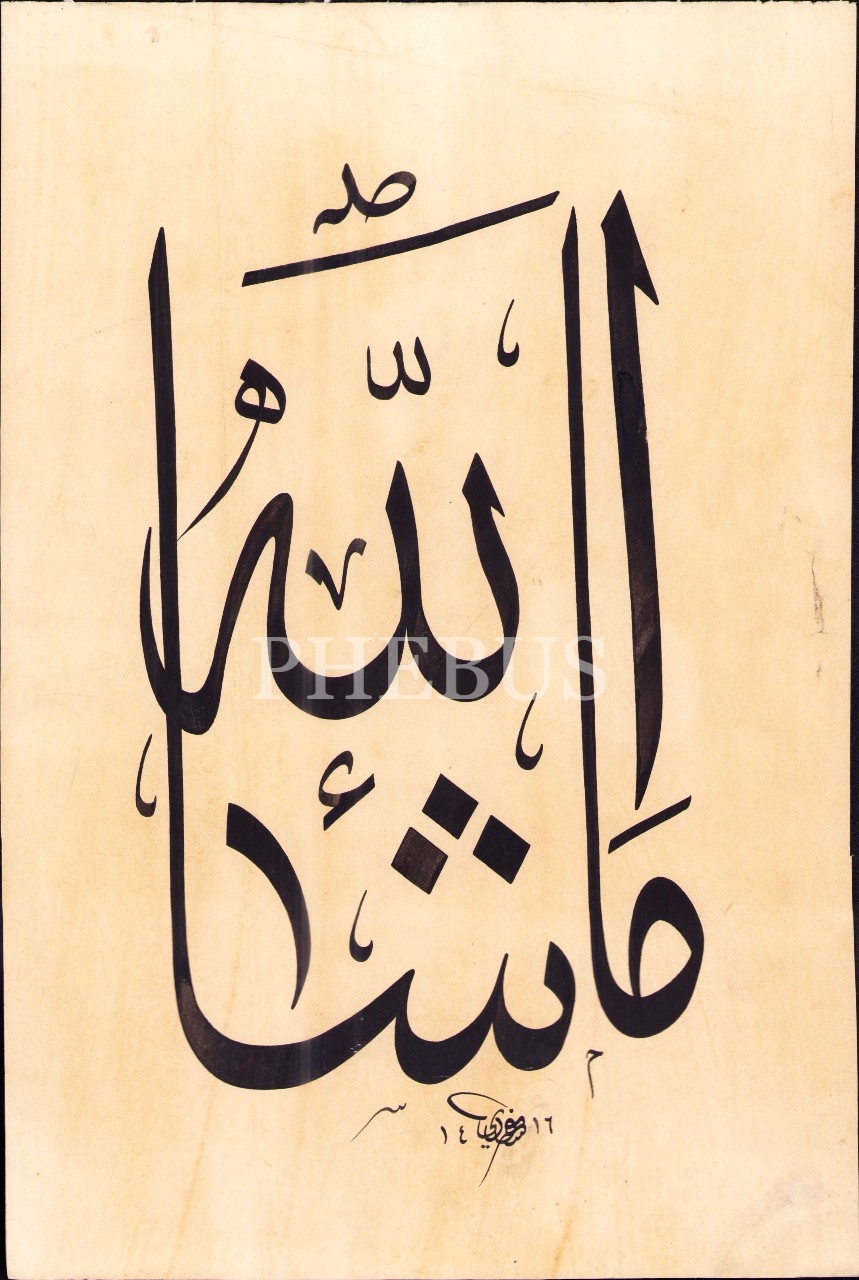 ما شاء الله
PHEBUS
١٤ ١٦